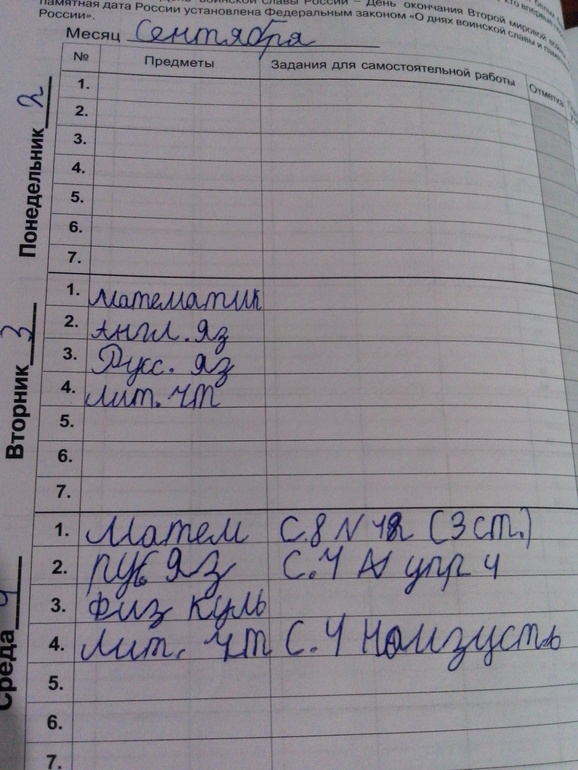 воинской славы России – День окончания Второй мировой
памятная дата России установлена Федеральным законом «О днях воинской славы и
России».
Месяц Сентября
№ Предметы Задания для самостоятельной работы Отметка
Понедельник 2
1.
2.
3.
4.
5.
6.
7.
Вторник 3
1. математик
2. Англ. яз
3. Русс. яз
4. лит. чт
5.
6.
7.
Среда 4
1. Матем С.8 N (3 ст.)
2. рус яз С.4 упр 4
3. физ куль
4. Лит. чт С.4 Наизусть
5.
6.
7.